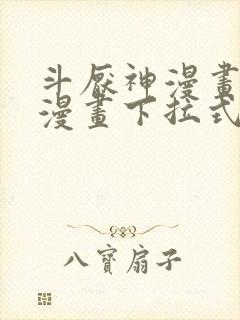 斗厭神漫畫
漫畫下拉式
八寶扇子